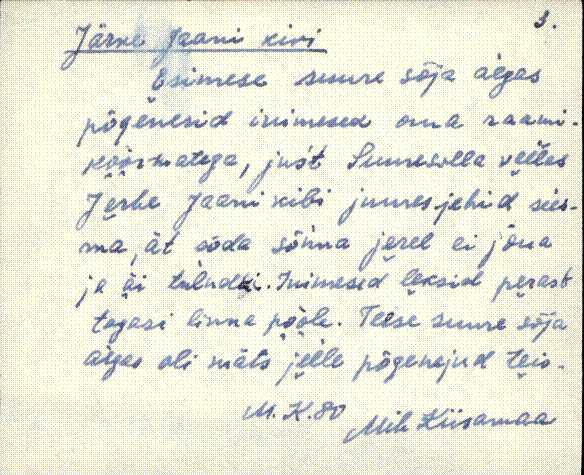 3.
Järve Jaani kivi
Esimese suure sõja aegas
põgenesid inimesed oma raami-
köörmatega, just Suuresolla veeles
Jerve Jaani kibi juures jehid sees-
ma, ät sõda sõnna jerel ei jõua
ja äi tulndki. Inimesed leksid perast
tagasi linna pööle. Teese suure sõja
aegas oli mäts jelle põgenejud teis.
M. K. 80
Mihkel Kiisamaa